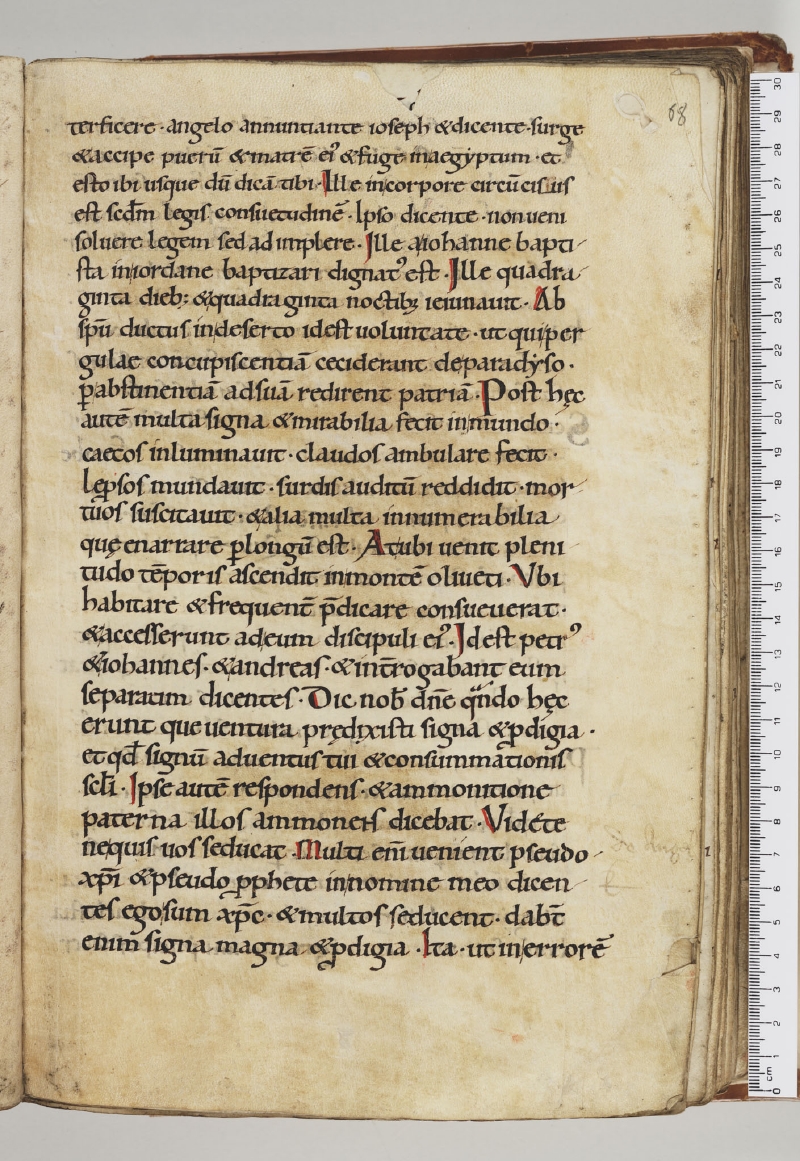 68
terficere · angelo annuntiante ioseph & dicente · surge
& accipe puerū & matrē ei᾽ & fuge in aegyptum · et
esto ibi usque dū dicā tibi · Ille in corpore circūcisus
est scd̄m legis consuetudinē · Ipso dicente · non ueni
soluere legem sed adimplere · Ille a iohanne bapti-
sta in iordane baptizari dignat᾽ est · Ille quadra-
ginta dieb; & quadraginta noctib; ieiunauit · Ab
sp̄u ductus in deserto idest uoluntate · ut qui per
gulae concupiscentiā ceciderant de paradyso ·
ꝑ abstinentiā ad suā redirent patriā · Post hęc
autē multa signa & mirabilia fecit in mundo ·
caecos inluminauit · claudos ambulare fecit ·
lęprsos mundauit · surdis auditū reddidit · mor-
tuos suscitauit · & alia multa innumerabilia
quę enarrare ꝑ longū est · At ubi uenit pleni
tudo tēporis ascendit in montē oliueti · Vbi
habitare & frequent̄ p̄dicare consueuerat ·
& accesserunt ad eum discipuli ei᾽ · Id est petr᾽
& iohannes · & andreas · & int̄rogabant eum
separatim dicentes · Dic nob̄ dn̄e qn̄do hęc
erunt que uentura prędixisti signa & ꝓdigia ·
et qd̄ signū aduentus tui & consummationis
scl̄i · Ipse autē respondens · & ammonitione
paterna illos ammonens dicebat · Vidéte
nequis uos seducat · Multi eni̅ uenient pseudo-
xp̄i & pseudo ꝓphete in nomine meo dicen-
tes ego sum xp̄c · & multos seducent · dabt̄
enim signa magna & ꝓdigia · Ita · ut in errorē